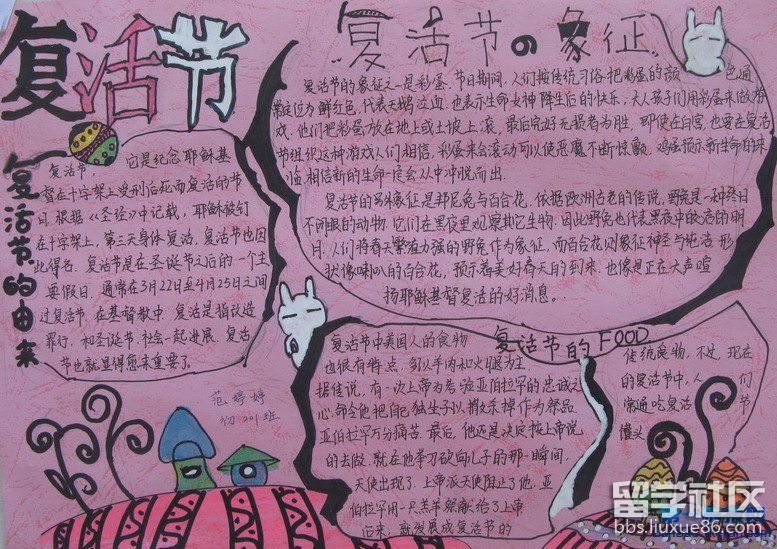 复活节
复活节的由来
复活节，它是纪念耶稣基
督在十字架上受刑后死而复活的节
日.根据《圣经》中记载，耶稣被钉
在十字架上，第三天身体复活，复活节也因
此得名.复活节是在圣诞节之后的一个主
要假日.通常在3月22日至4月25日之间
过复活节.在基督教中.复活是指改造
罪行.和圣诞节.社会一起进展.复活
节也就显得愈来重要了.
复活节の象征
复活节的象征之一是彩蛋.节日期间.人们按传统习俗把彩蛋的颜色通
常定位为鲜红色,代表天鹅泣血.也表示生命女神降生后的快乐;大人孩子们用彩蛋来做游
戏.他们把彩蛋放在地上或土坡上滚,最后完好无损者为胜.即使在白宫,也要在复活
节组织这种游戏人们相信,彩蛋来会滚动可以使恶魔不断惊颤.鸡蛋预示新生命的来
临,相信新的生命一定会从中冲脱而出.
复活节的另外象征是邦尼兔与百合花.依据欧洲古老的传说,野兔是一种终日
不闭眼的动物.它们在黑夜里观察其它生物.因此野兔也代表黑夜中皎洁的明
月.人们将春天繁殖力强的野兔作为象征,而百合花则象征神圣与纯洁.形
状像喇叭的百合花，预示着美好春天的到来.也像是正在大声喧
扬耶稣基督复活的好消息。.
复活节的FOOD
复活节中美国人的食物
也很有特点,多以羊肉和火腿为主.
据传说,有一次上帝为考验亚伯拉罕的忠诚之
心,命令他把自己独生子以撒杀掉作为祭品.
亚伯拉罕万分痛苦.最后,他还是决定按上帝说
的去做.就在他举刀砍向儿子的那一瞬间.
天使出现了.上帝派天使阻止了他.亚
伯拉罕用一只羔羊祭献给了上帝
后来，就发展成复活节的
传统食物,不过,现在
的复活节中,人们
常通吃复活节
馒头
范婷婷
初201班
留学社区
bbs.liuxue86.com